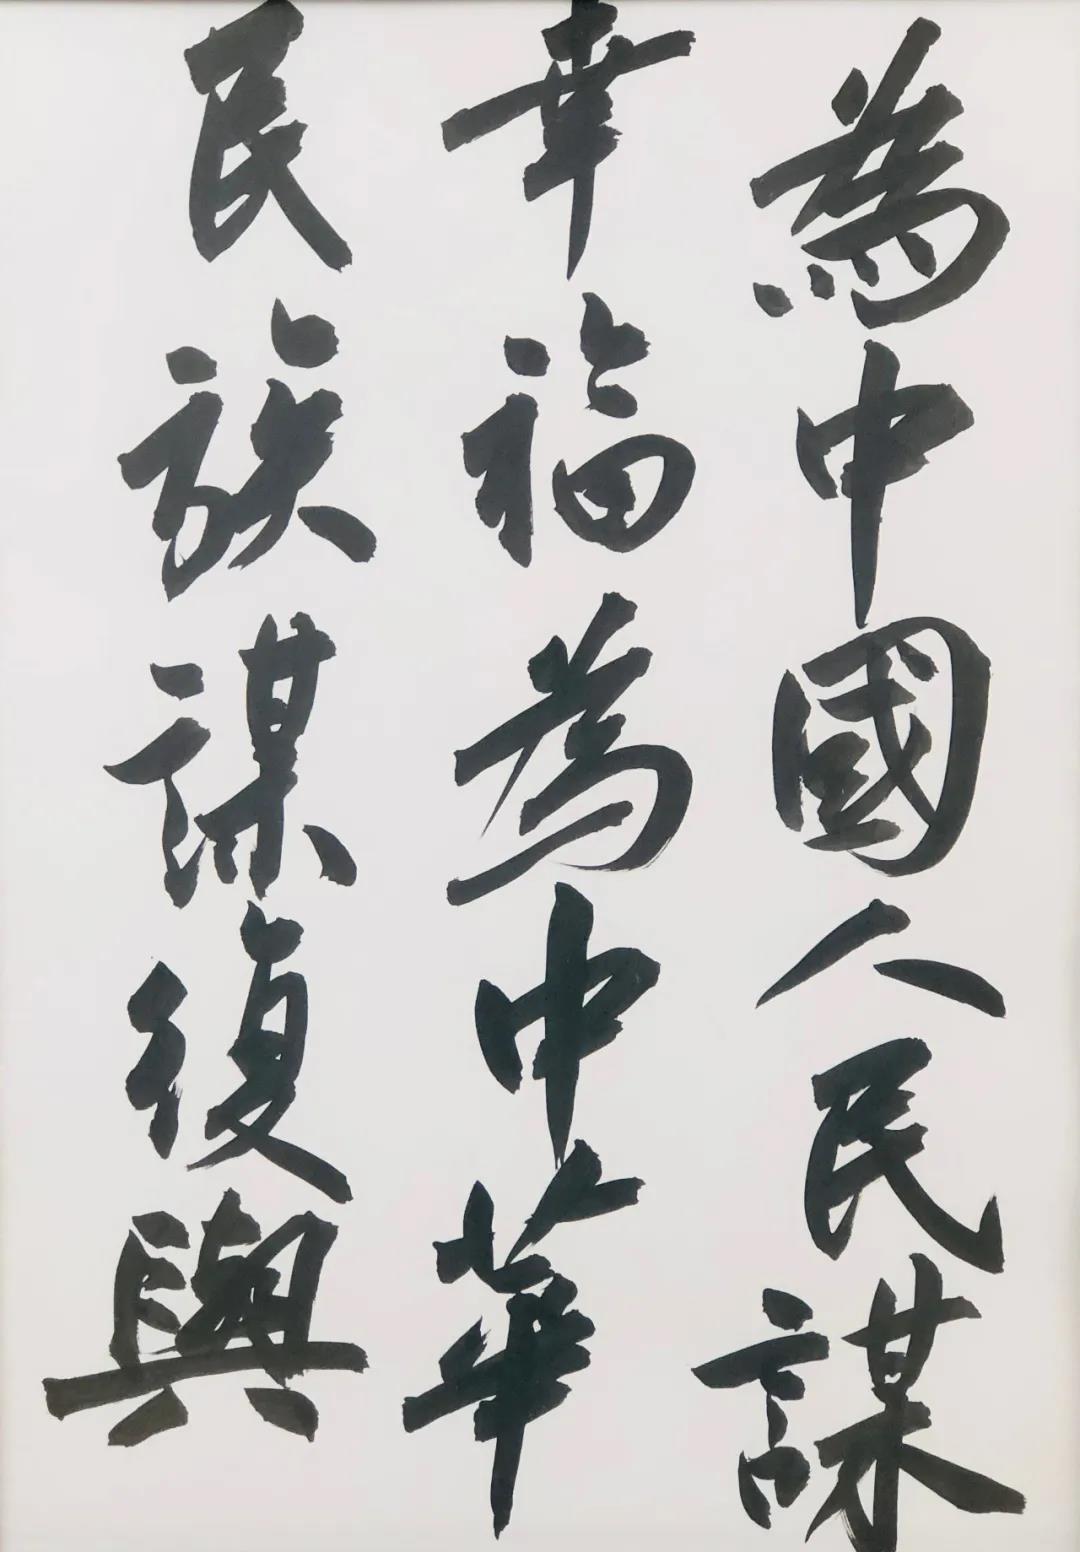 為中國人民謀
幸福為中華
民族謀復興